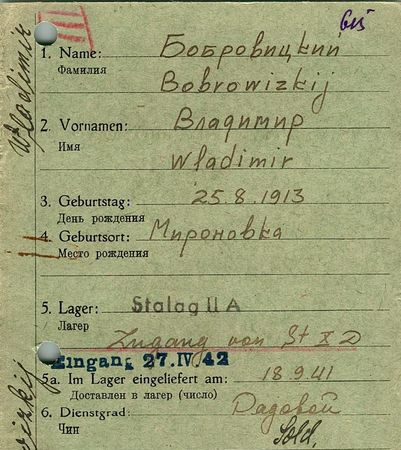 Wladimir
1. Name: Бобровицкий
Фамилия
Bobrowizkij
2. Vornamen: Владимир
Имя
Wladimir
3. Geburtstag: 25.8.1913
День рождения
4. Geburtsort: Мироновка
Место рождения
5. Lager: Stalag II A
Лагерь
Zugang von St X D
Eingang 27. IV. 42
5a. Im Lager eingeliefert am: 18.9.41
Доставлен в лагерь (число)
6. Dienstgrad: Рядовой
Чин
Sold.